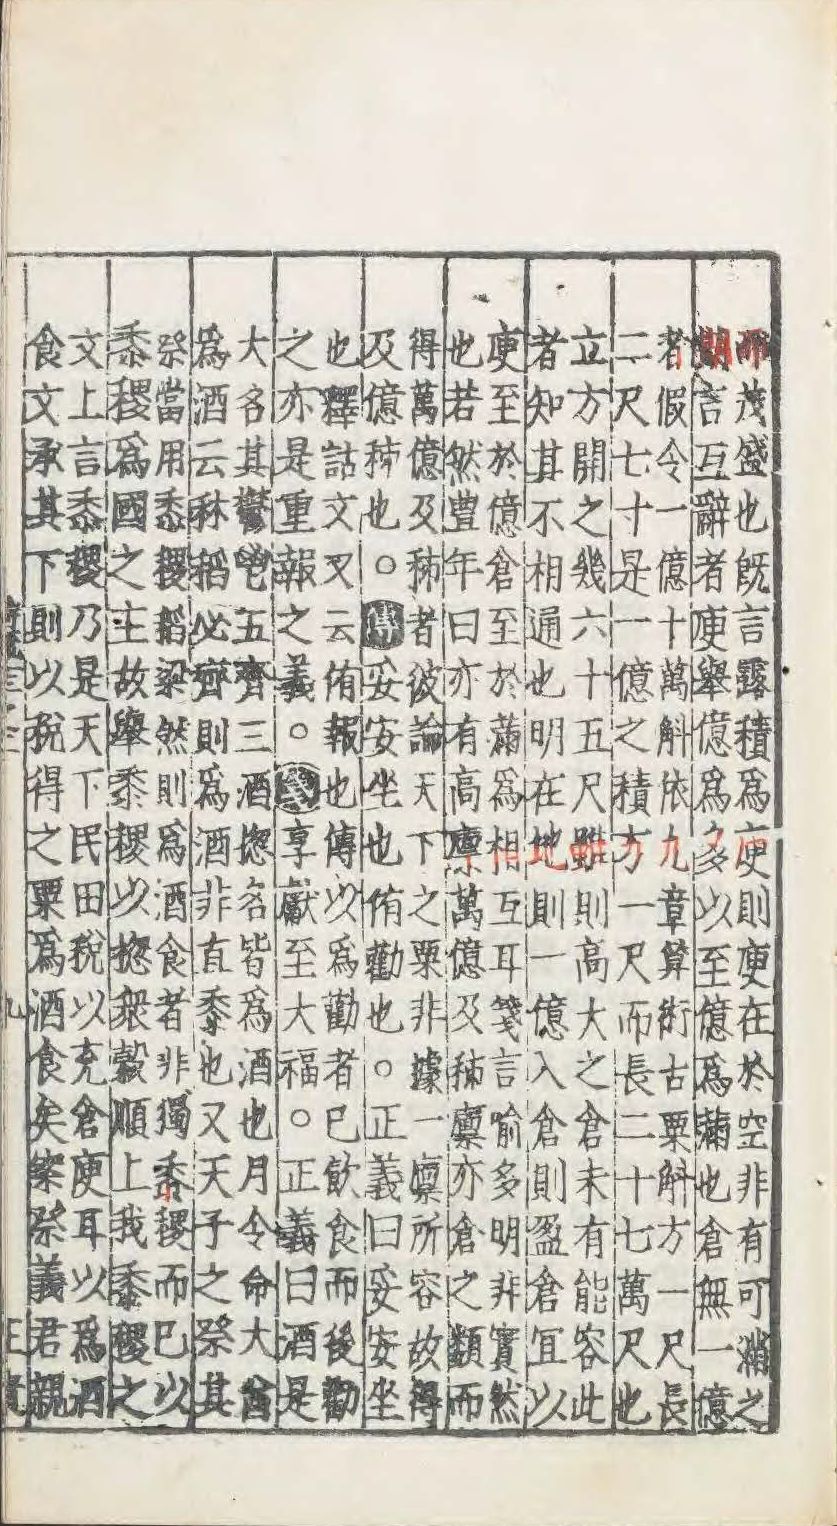 而茂盛也旣言露積爲庾則庾在於空非有可滿之
期言互辭者庾舉億爲多以至億爲滿也倉無一億
者假令一億十萬斛依九章算術古粟斛方一尺長
二尺七寸是一億之積方一尺而長二十七萬尺也
立方開之幾六十五尺雖則高大之倉未有能容此
者知其不相通也明在地則一億入倉則盈倉冝以
庾至於億倉至於滿爲相互耳箋言喻多明非實然
也若然豊年曰亦有高廪萬億及秭廪亦倉之類而
得萬億及秭者彼論天下之粟非據一廪所容故得
及億秭也○傳妥安坐也侑勸也○正義曰妥安坐
也釋詁文又云侑報也傳以爲勸者已飮食而後勸
之亦是重報之義○箋享獻至大福○正義曰酒是
大名其鬱鬯五齊三酒揔名皆爲酒也月令命大酋
爲酒云秫稻必齊則爲酒非直黍也又天子之祭其
祭當用黍稷稻粱然則爲酒食者非獨黍稷而已以
黍稷爲國之主故舉黍稷以揔衆穀順上我黍稷之
文上言黍稷乃是天下民田稅以充倉庾耳以爲酒
食文承其下則以稅得之粟爲酒食矣案祭義君親